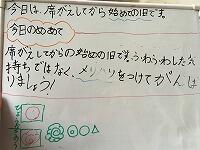 今日は、席がえしてから始めての日です。
今日のめめて
席がえしてからの始めての日です。うわうわした気
持ちではなく、メリハリをつけてがんば
りましょう!